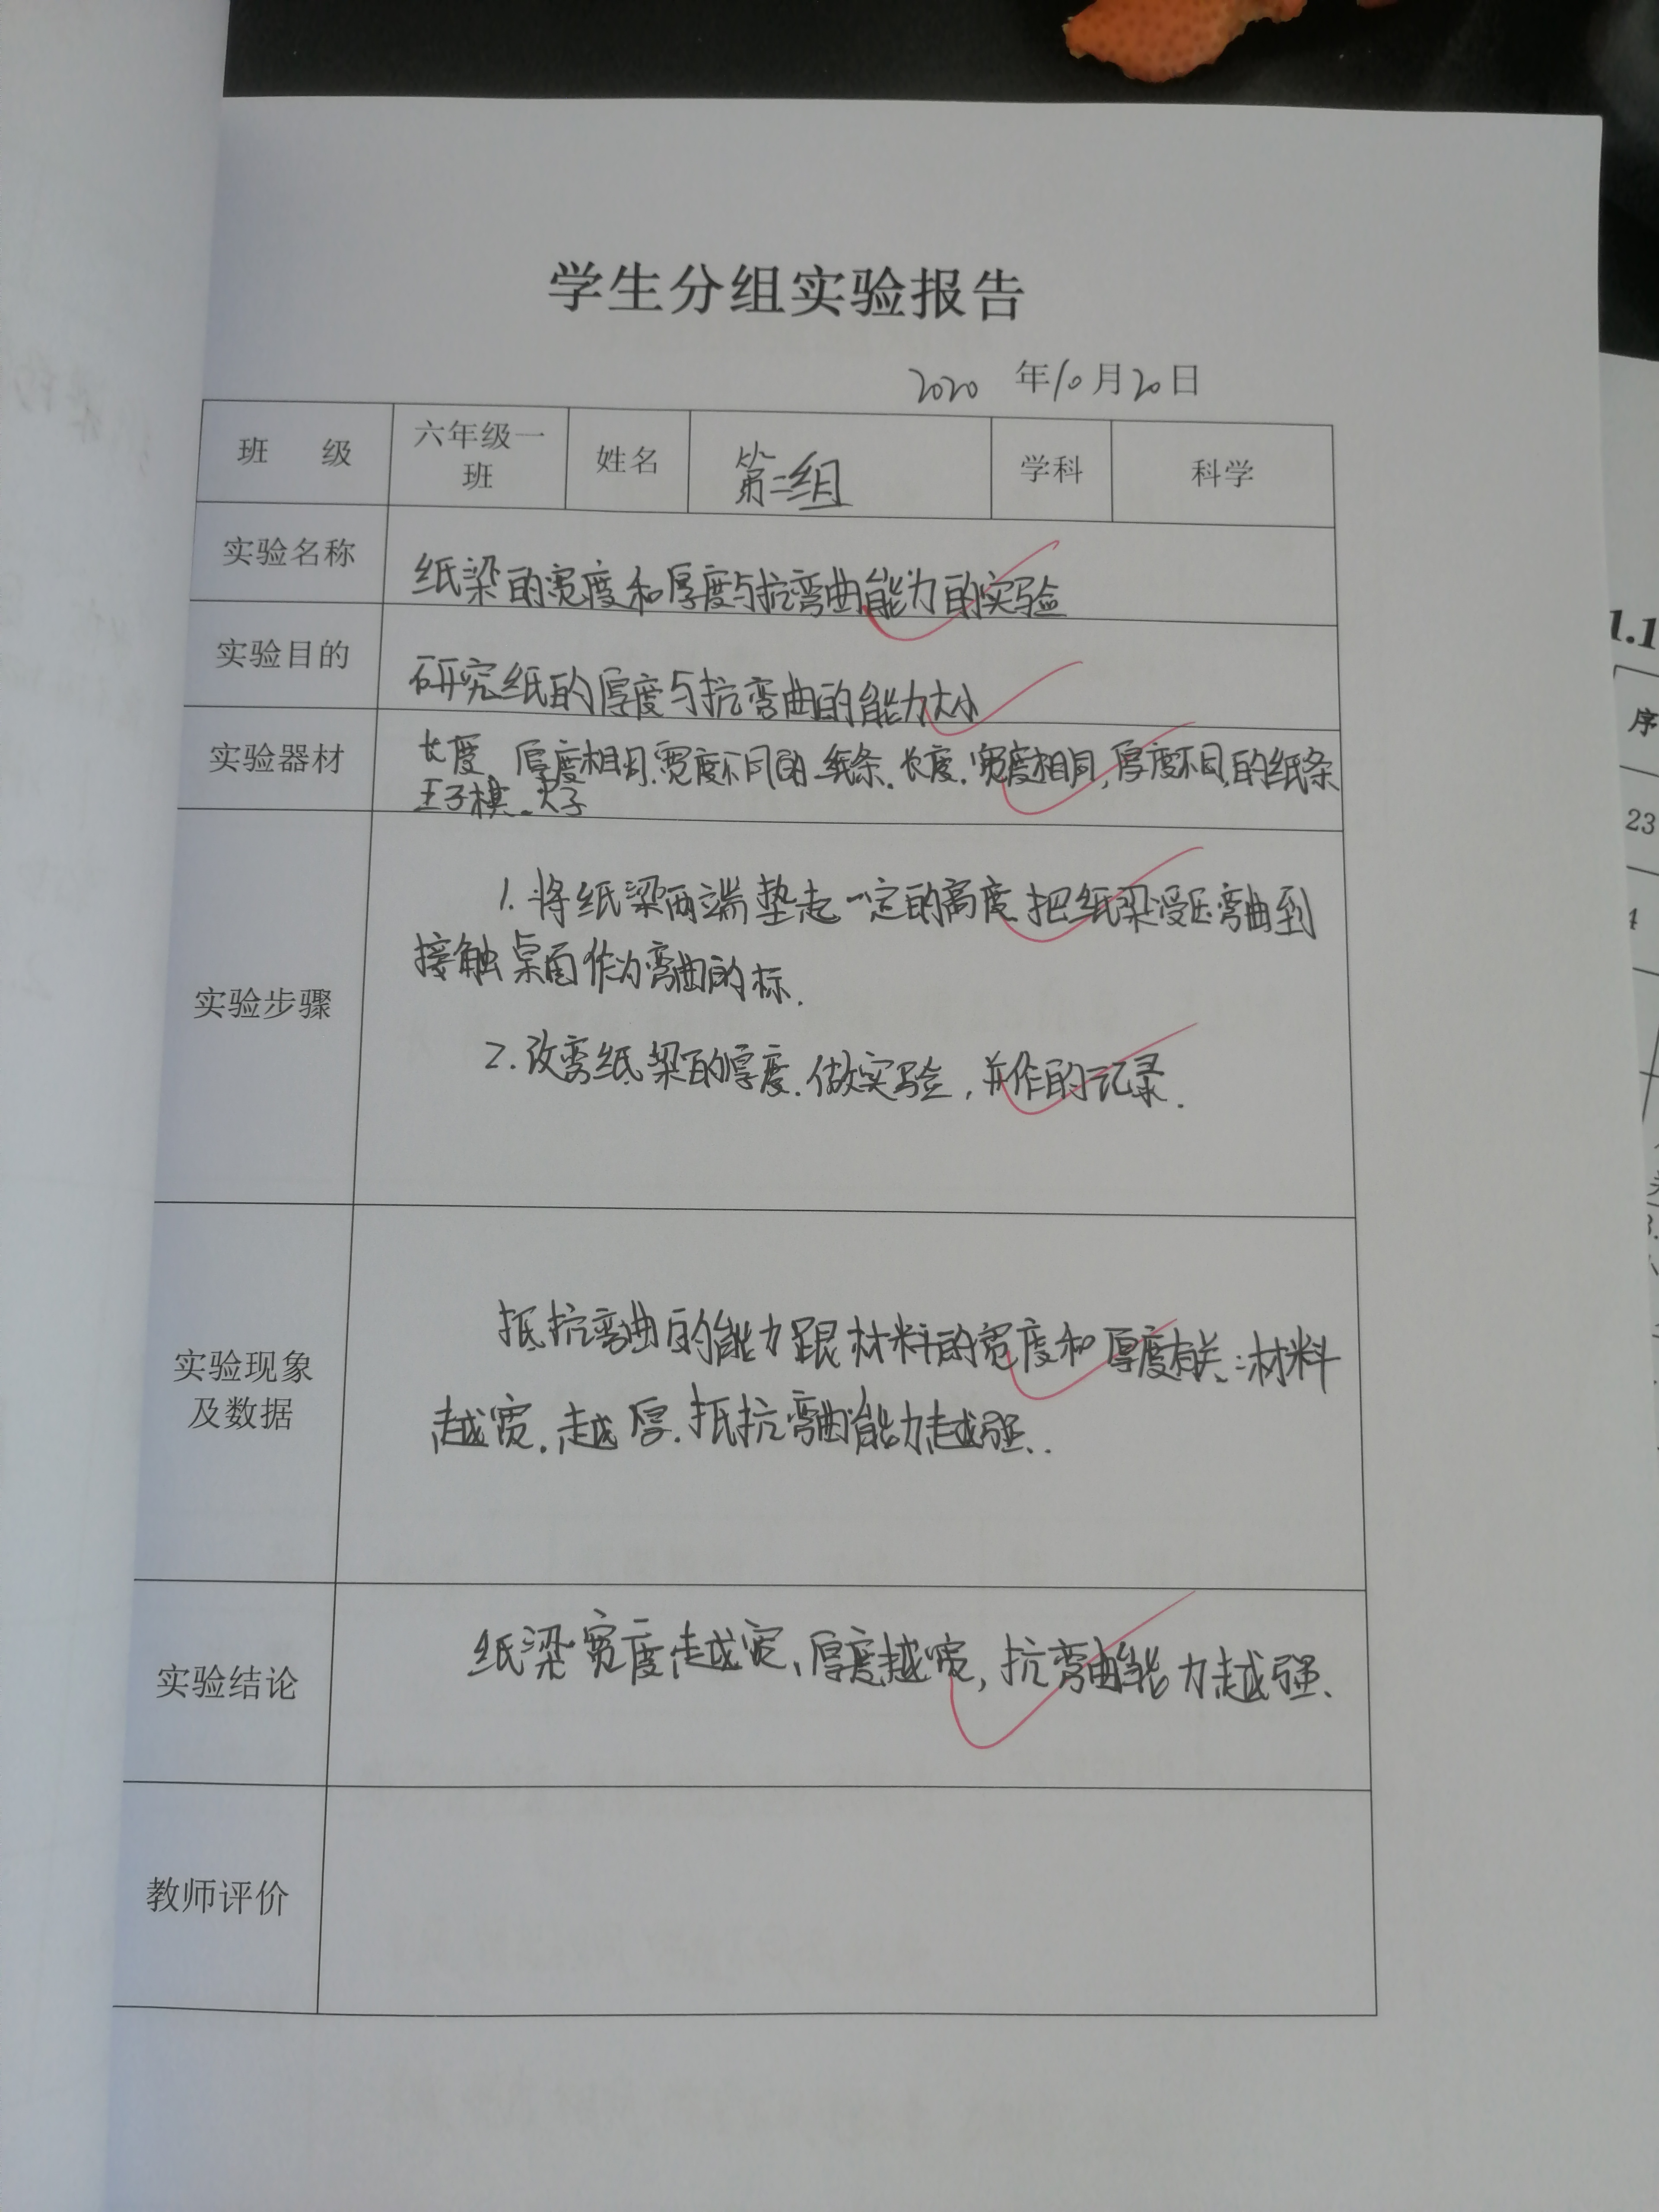 学生分组实验报告
2020 年10月20日
班 级 六年级一班 姓名 第二组 学科 科学
实验名称 纸梁的宽度和厚度与抗弯曲能力的实验
实验目的 研究纸的厚度与抗弯曲的能力大小
实验器材 长度、厚度相同.宽度不同的纸条.长度.宽度相同,厚度不同的纸条
王子棋.
实验步骤
1.将纸梁两端垫起一定的高度.把纸梁受压弯曲到
接触桌面作为弯曲的标.
2.改弯纸梁的厚度.做实验,并作的记录.
实验现象
及数据
抵抗弯曲的能力跟材料的宽度和厚度有关:材料
越宽.越厚.抵抗弯曲能力越强.
实验结论 纸梁宽度越宽、厚度越宽,抗弯曲能力越强、
教师评价
1.1
序
23
4